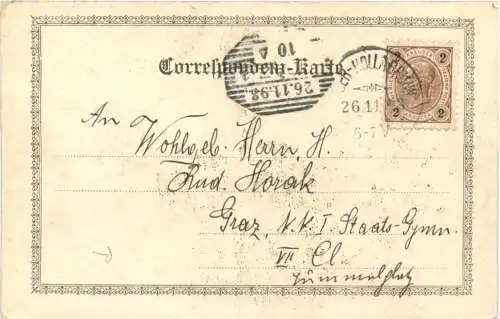 Correspondenz-Karte
26.11.98
10
26.11
2
2 2
An
Wohlgeb. Herrn, H.
Rud. Horak
Graz, N. K. I Staats-Gymn.
VII Cl.
Tummelplatz